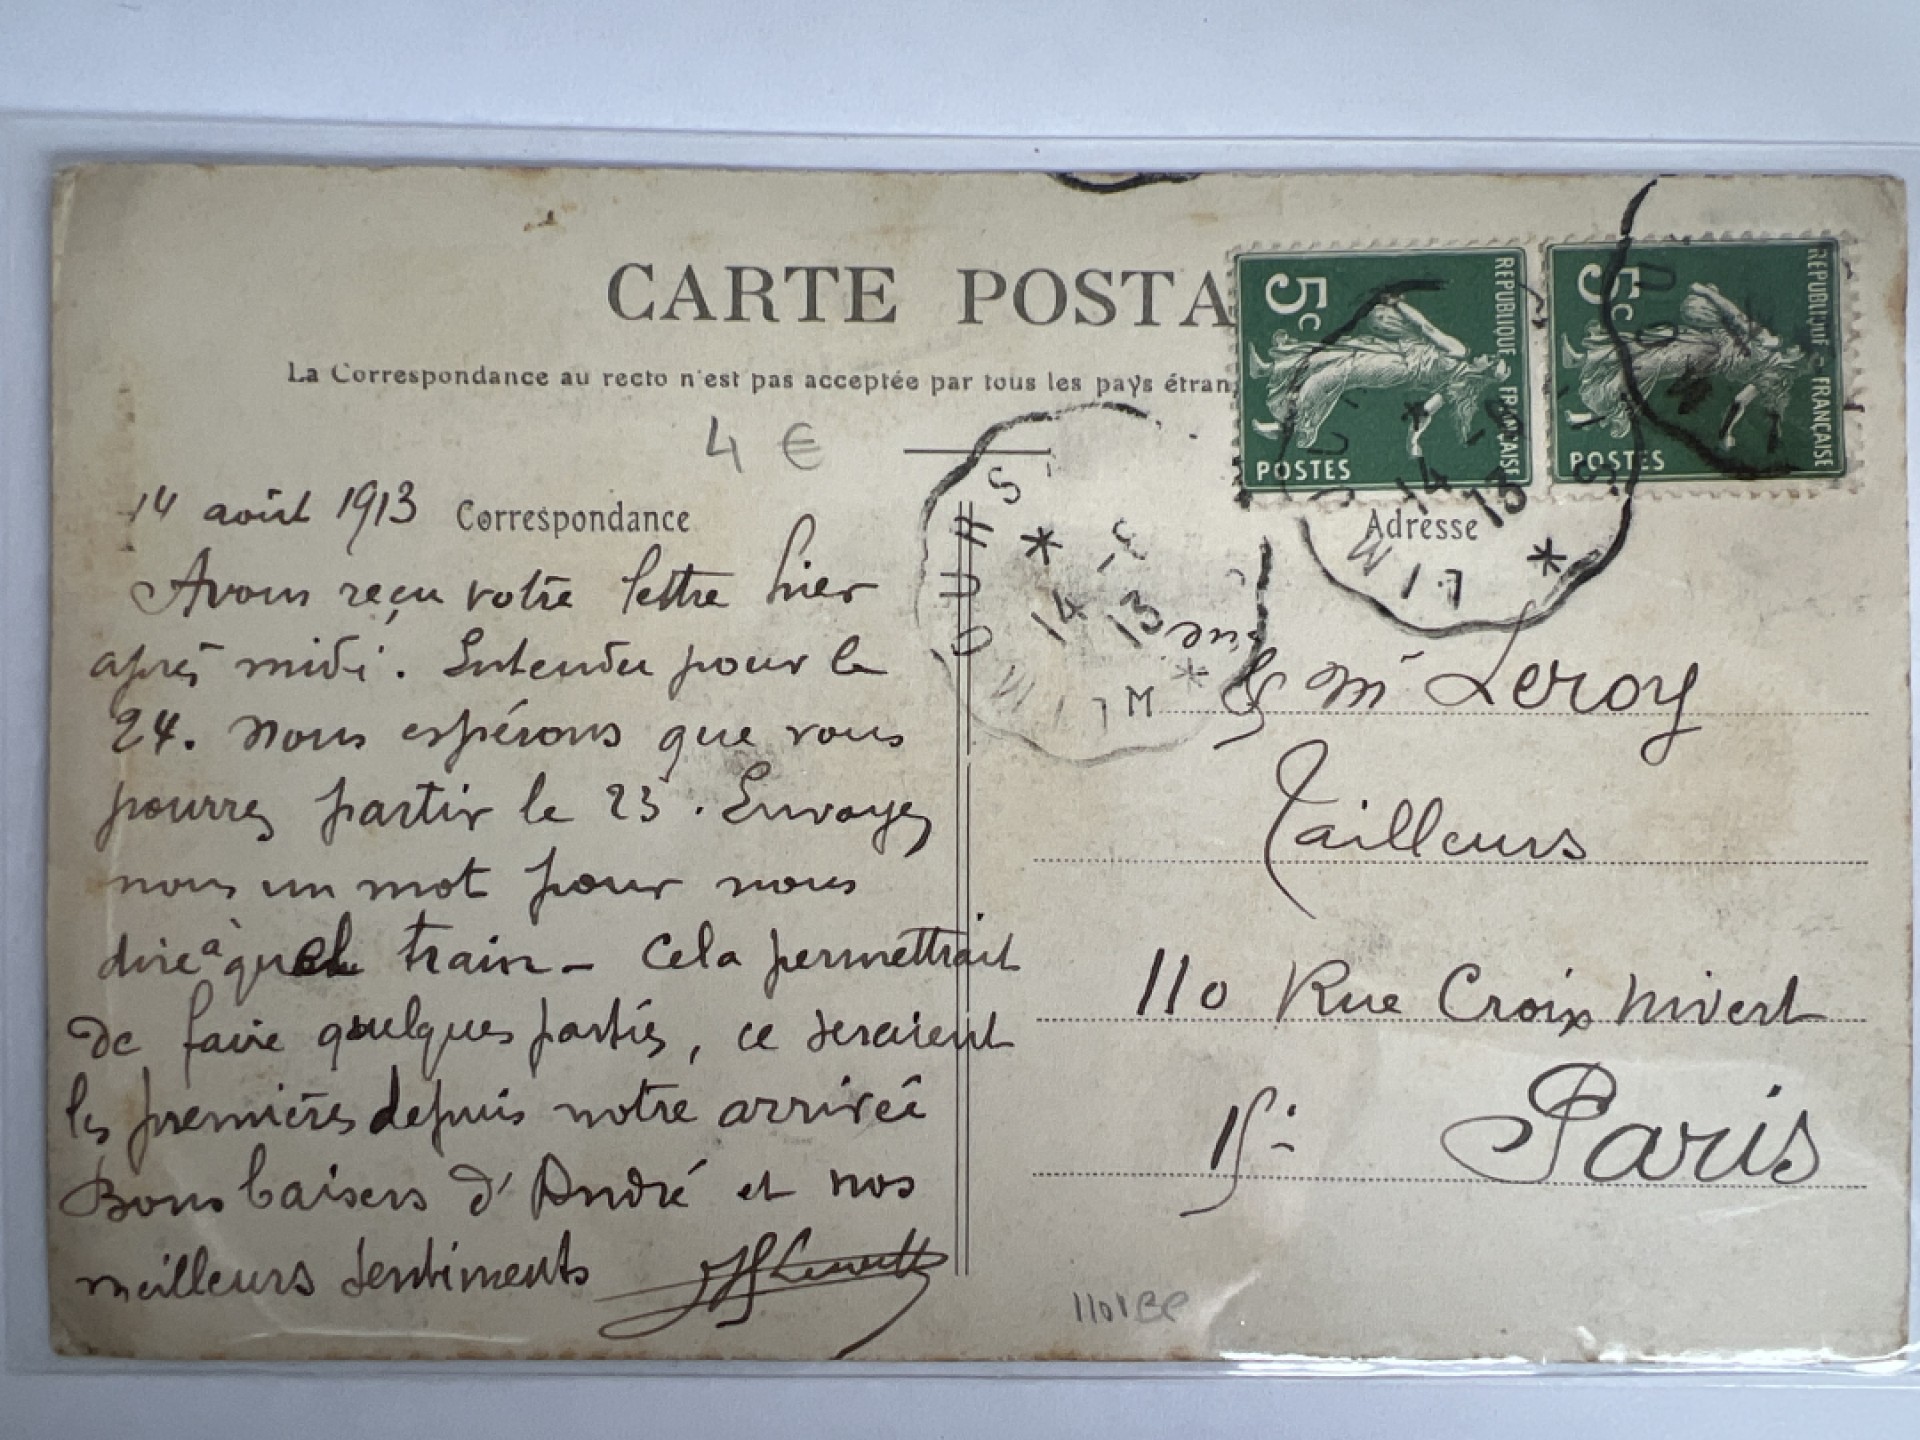 CARTE POSTA
La Correspondance au recto n'est pas acceptée par tous les pays étran
4 €
5c
REPUBLIQUE FRANÇAISE
POSTES
5c
REPUBLIQUE FRANÇAISE
POSTES
OURS
14 -8
13
LIM
14 -8
13
LIM
Correspondance
Adresse
14 août 1913
Avons reçu votre lettre hier
après midi. Entendu pour le
24. Nous espérons que vous
pourrez partir le 23. Envoyez
nous un mot pour nous
dire à quel train - Cela permettrait
de faire quelques parties, ce seraient
les premières depuis notre arrivée
Bons baisers d'André et nos
meilleurs sentiments
Mr Leroy
Tailleurs
110 Rue Croix Nivert
15è Paris